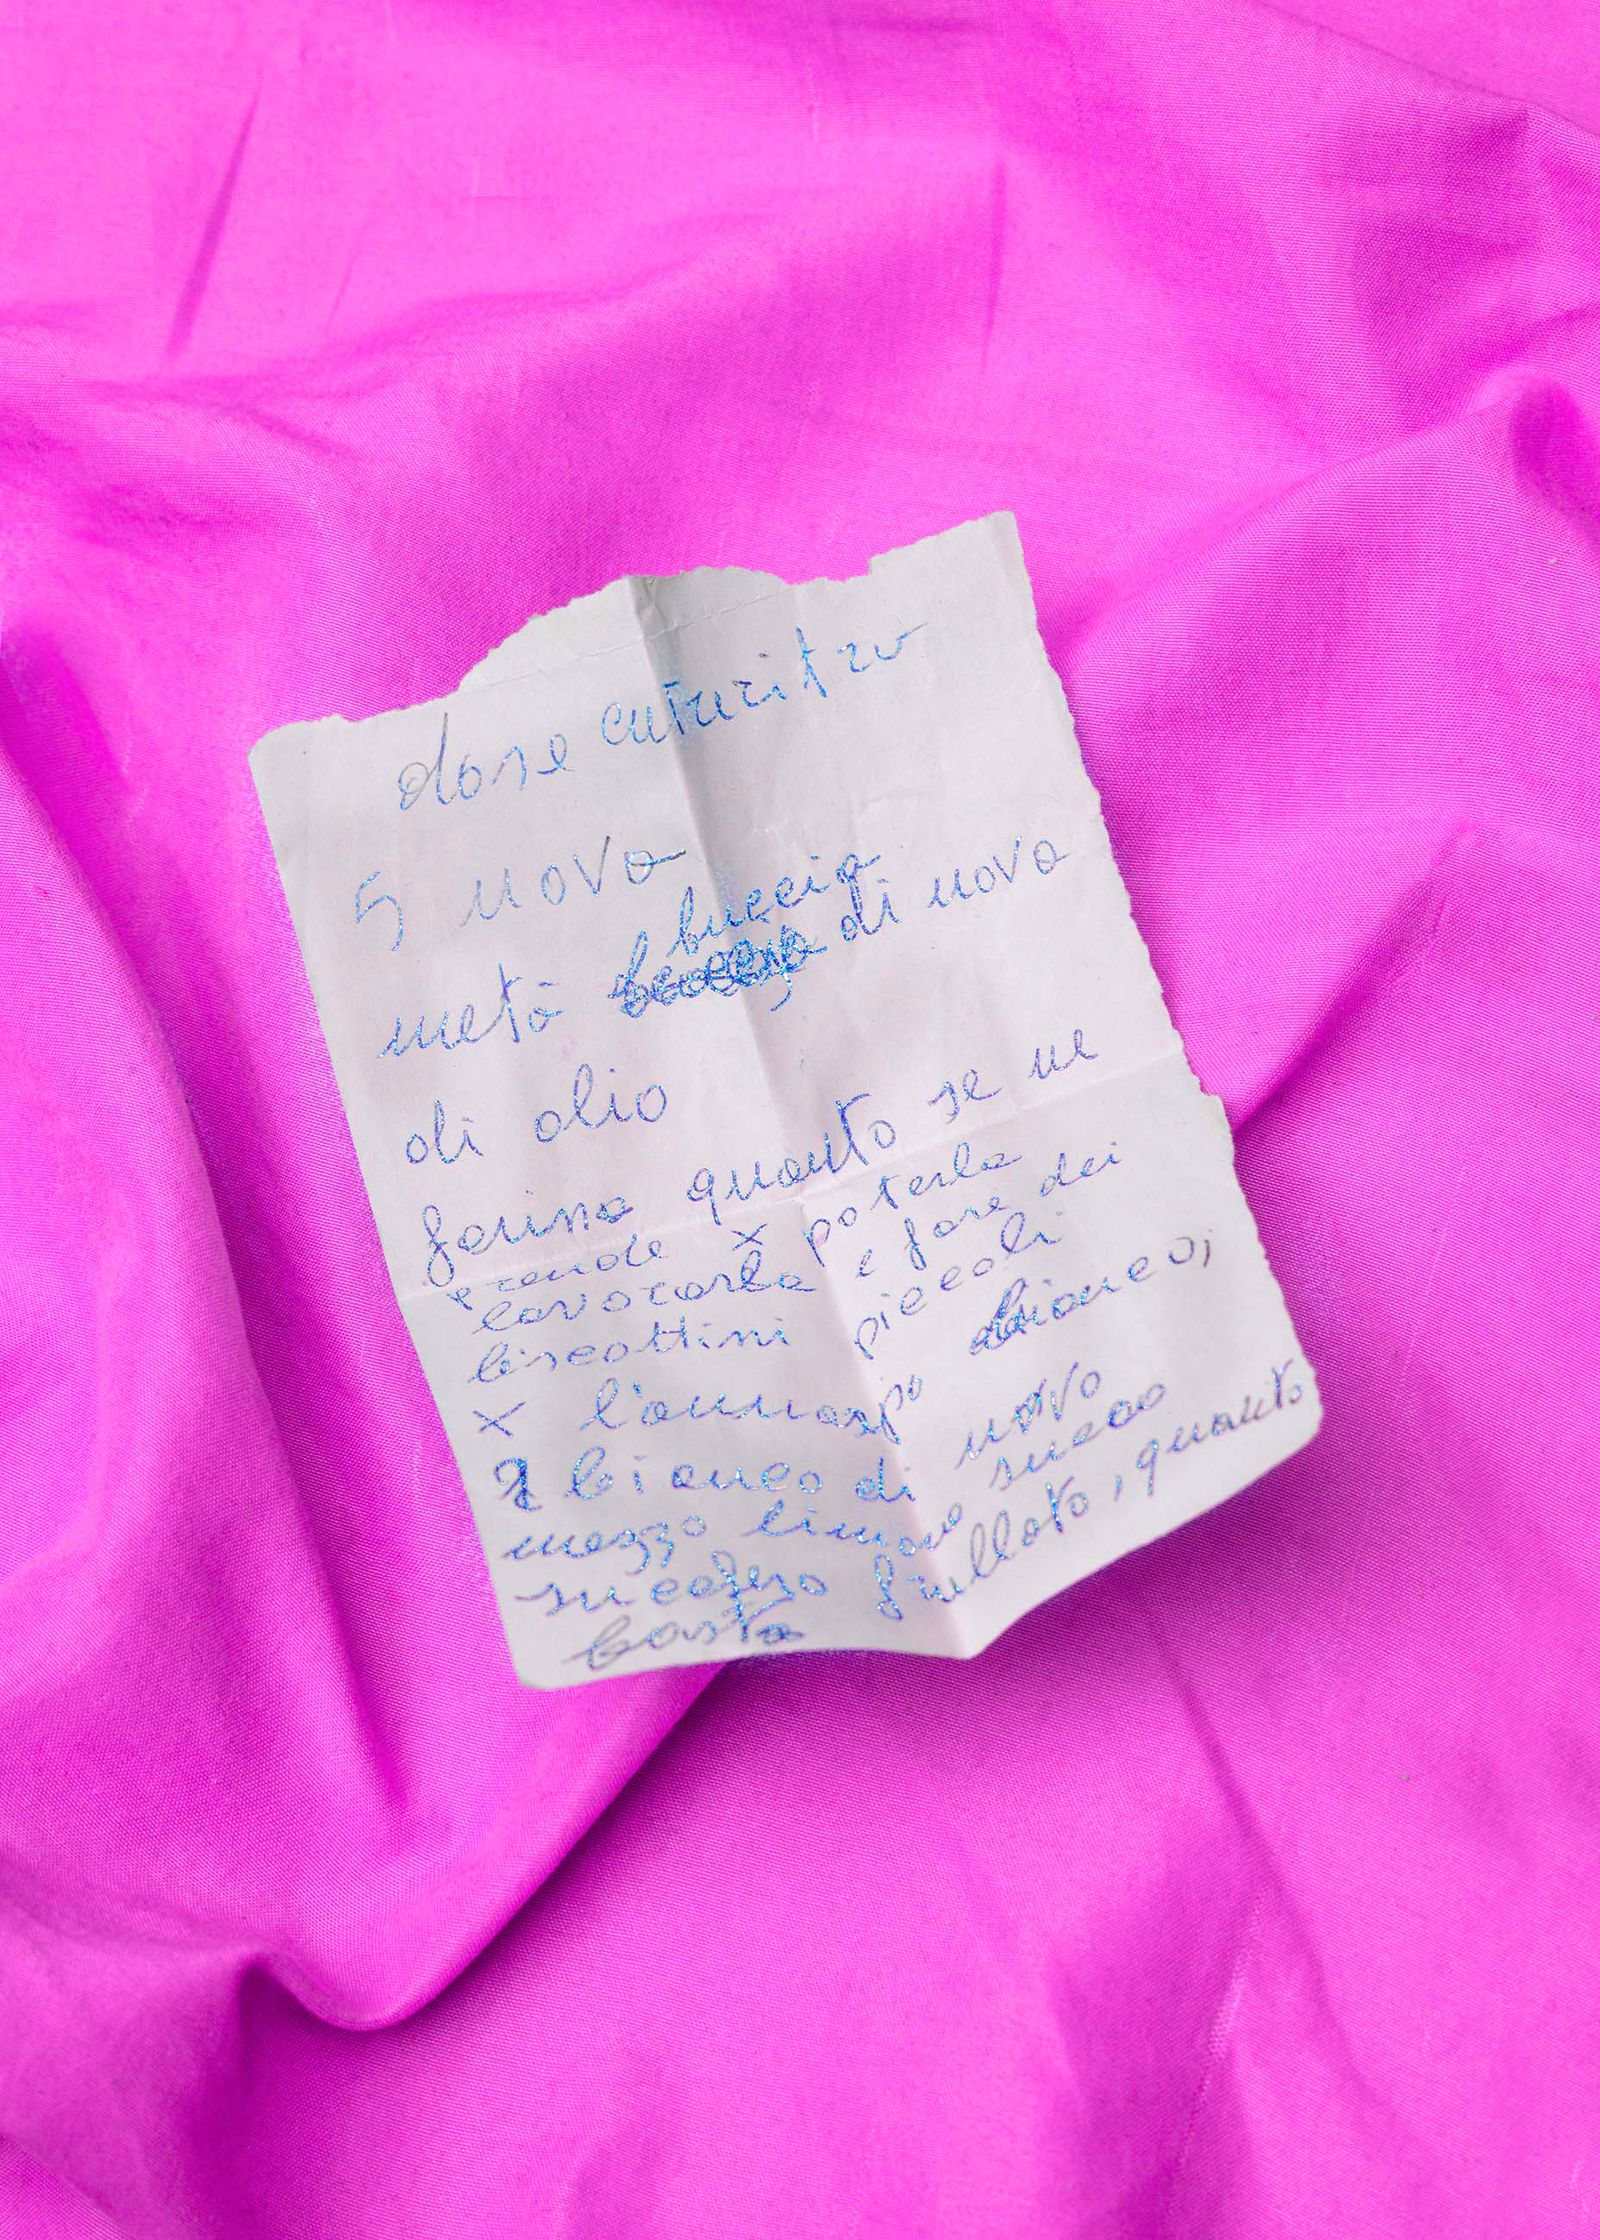 dose cuturitzu
5 uova
metà buccia di uova
di olio
farina quanto se ne
prende x poterla
lavorarla e fare dei
biscottini piccoli
x l'annaspo bianco,
2 bianco di uovo
mezzo limone succo
zucchero frullato, quanto
basta